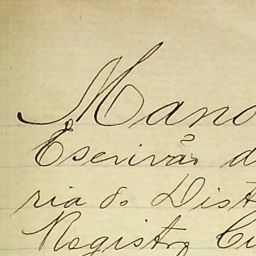 Mano
Escrivão d
ria do Dist
Registro Ci